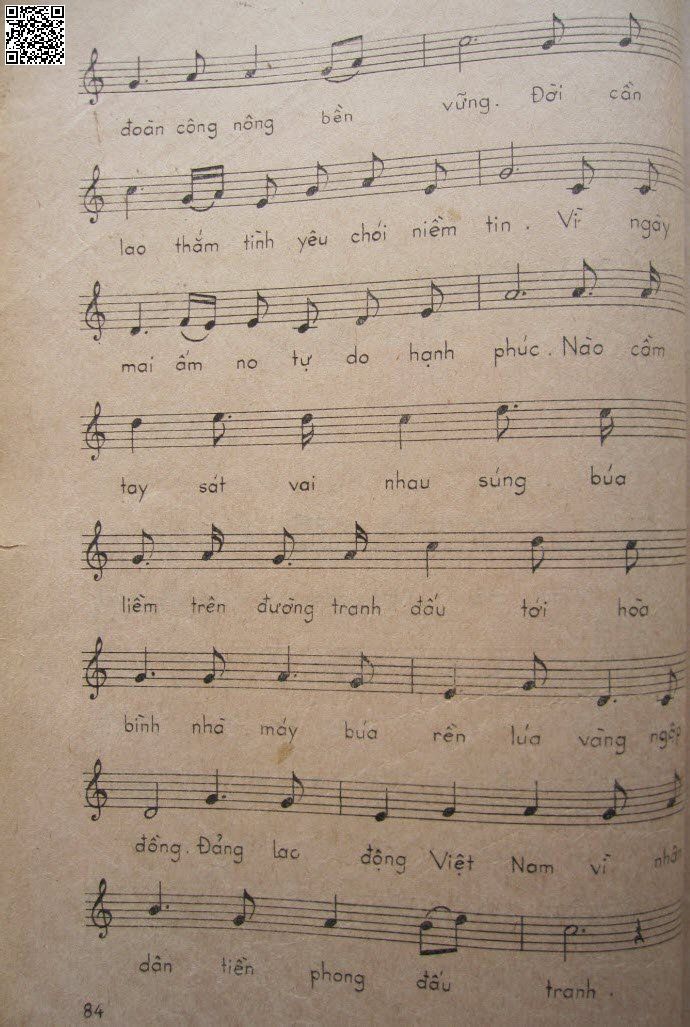 đoàn công nông bền vững. Đời cần
lao thắm tình yêu chói niềm tin. Vì ngày
mai ấm no tự do hạnh phúc. Nào cầm
tay sát vai nhau súng búa
liềm trên đường tranh đấu tới hòa
bình nhà máy búa rền lúa vàng ngập
đồng. Đảng lao động Việt Nam vì nhân
dân tiền phong đấu tranh.
84